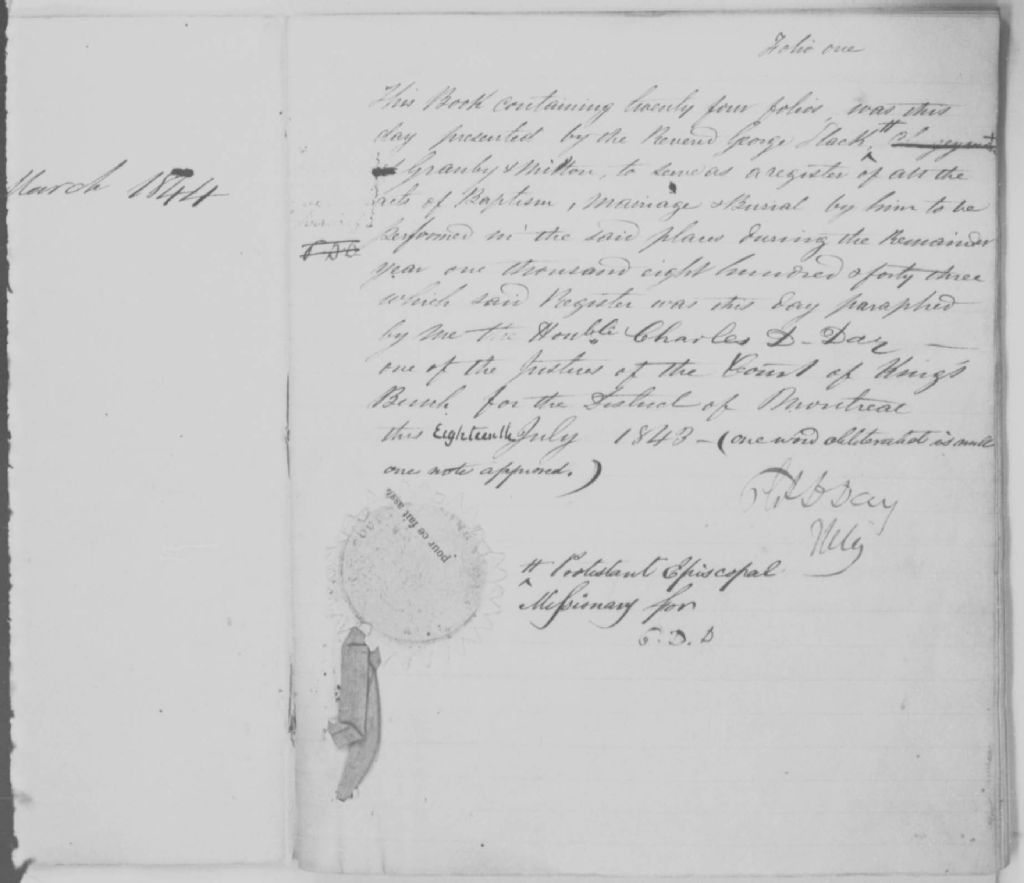 March 1844
Folio one
This Book containing twenty four folios, was this
day presented by the Reverd George Slack, #
Granby & Milton, to serve as a register of all the
acts of Baptism, Marriage & Burial by him to be
performed in the said places during the Remainder
C D D
year one thousand eight hundred & forty three
which said Register was this day paraphed
by me the Honble Charles D. Day —
one of the Justices of the Court of King's
Bench for the District of Montreal
this Eighteenth July 1843 – (one word obliterated is null
one note approved.)
D Day
pour ce fait assi
# Protestant Episcopal
^ Missionary for
C. D. D